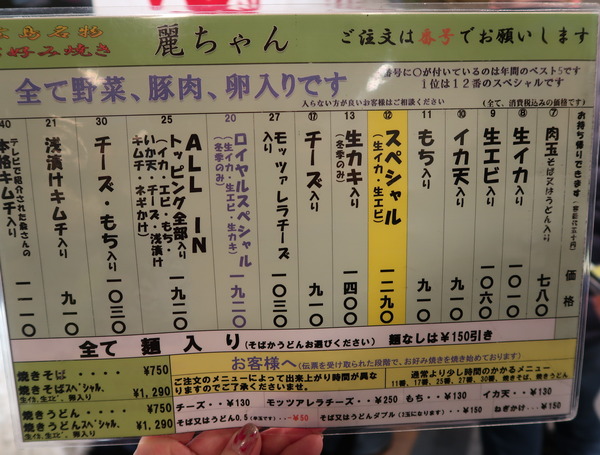 広島名物
お好み焼き
麗ちゃん
ご注文は番号でお願いします
全て野菜、豚肉、卵入りです
番号に〇が付いているのは年間のベスト5です
1位は12番のスペシャルです
入らない方が良いお客様はご相談ください
(全て、消費税込みの価格です)
お持ち帰りできます
価格
⑦ 肉玉そば又はうどん入り 七八〇
⑧ 生イカ入り 一〇〇〇
9 生エビ入り 一〇六〇
⑩ イカ天入り 九一〇
11 もち入り 九一〇
⑫ スペシャル(生イカ・生エビ) 一二九〇
13 生カキ入り(冬季のみ) 一四〇〇
⑰ チーズ入り 九一〇
27 モッツァレラチーズ入り 一〇三〇
20 ロイヤルスペシャル(生イカ・生エビ・生カキ)(冬季のみ) 一九二〇
25 ALL IN トッピング全部入り
(イカ・エビ・もち・いか天・チーズ・浅漬けキムチ・ネギかけ) 一九二〇
30 チーズ・もち入り 一〇三〇
21 浅漬けキムチ入り 九一〇
40 テレビで紹介された
本格キムチ入り 一一一〇
全て麺入り(そばかうどんお選びください) 麺なしは¥150引き
焼きそば・・・・・¥750
焼きそばスペシャル ¥1,290
生イカ、生エビ、卵入り
焼きうどん・・・・¥750
焼きうどんスペシャル ¥1,290
生イカ、生エビ、卵入り
お客様へ(伝票を受け取られた段階で、お好み焼きを焼き始めております)
ご注文のメニューによって出来上がり時間が異なりますのでご了承くださいませ。
通常より少し時間のかかるメニュー
11番、17番、25番、27番、30番、焼きそば、焼きうどん
チーズ・・¥130 モッツァレラチーズ・・¥250 もち・・¥130 イカ天・・¥130
そば又はうどん0.5(半玉です)・・¥50 そば又はうどんダブル(2玉になります)・・¥150 ねぎかけ・・¥130